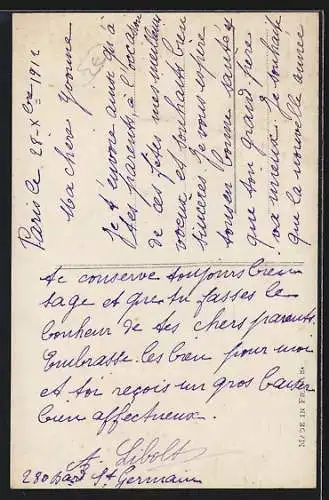 Paris le 28 - Xbre 1912
Ma chere Yvonne
Je t'envoie ainsi qu'à
tes parents, à l'occasion
de ces fêtes mes meilleurs
voeux et souhaits bien
sincères. Je vous espère
tous en bonne santé et
que ton grand père
va mieux. Je souhaite
que la nouvelle année
te conserve toujours bien
sage et que tu fasses le
bonheur de tes chers parents.
Embrasse les bien pour moi
et toi reçois un gros baiser
bien affectueux.
A. Libolt
280 Bard St Germain
MADE IN FRANCE